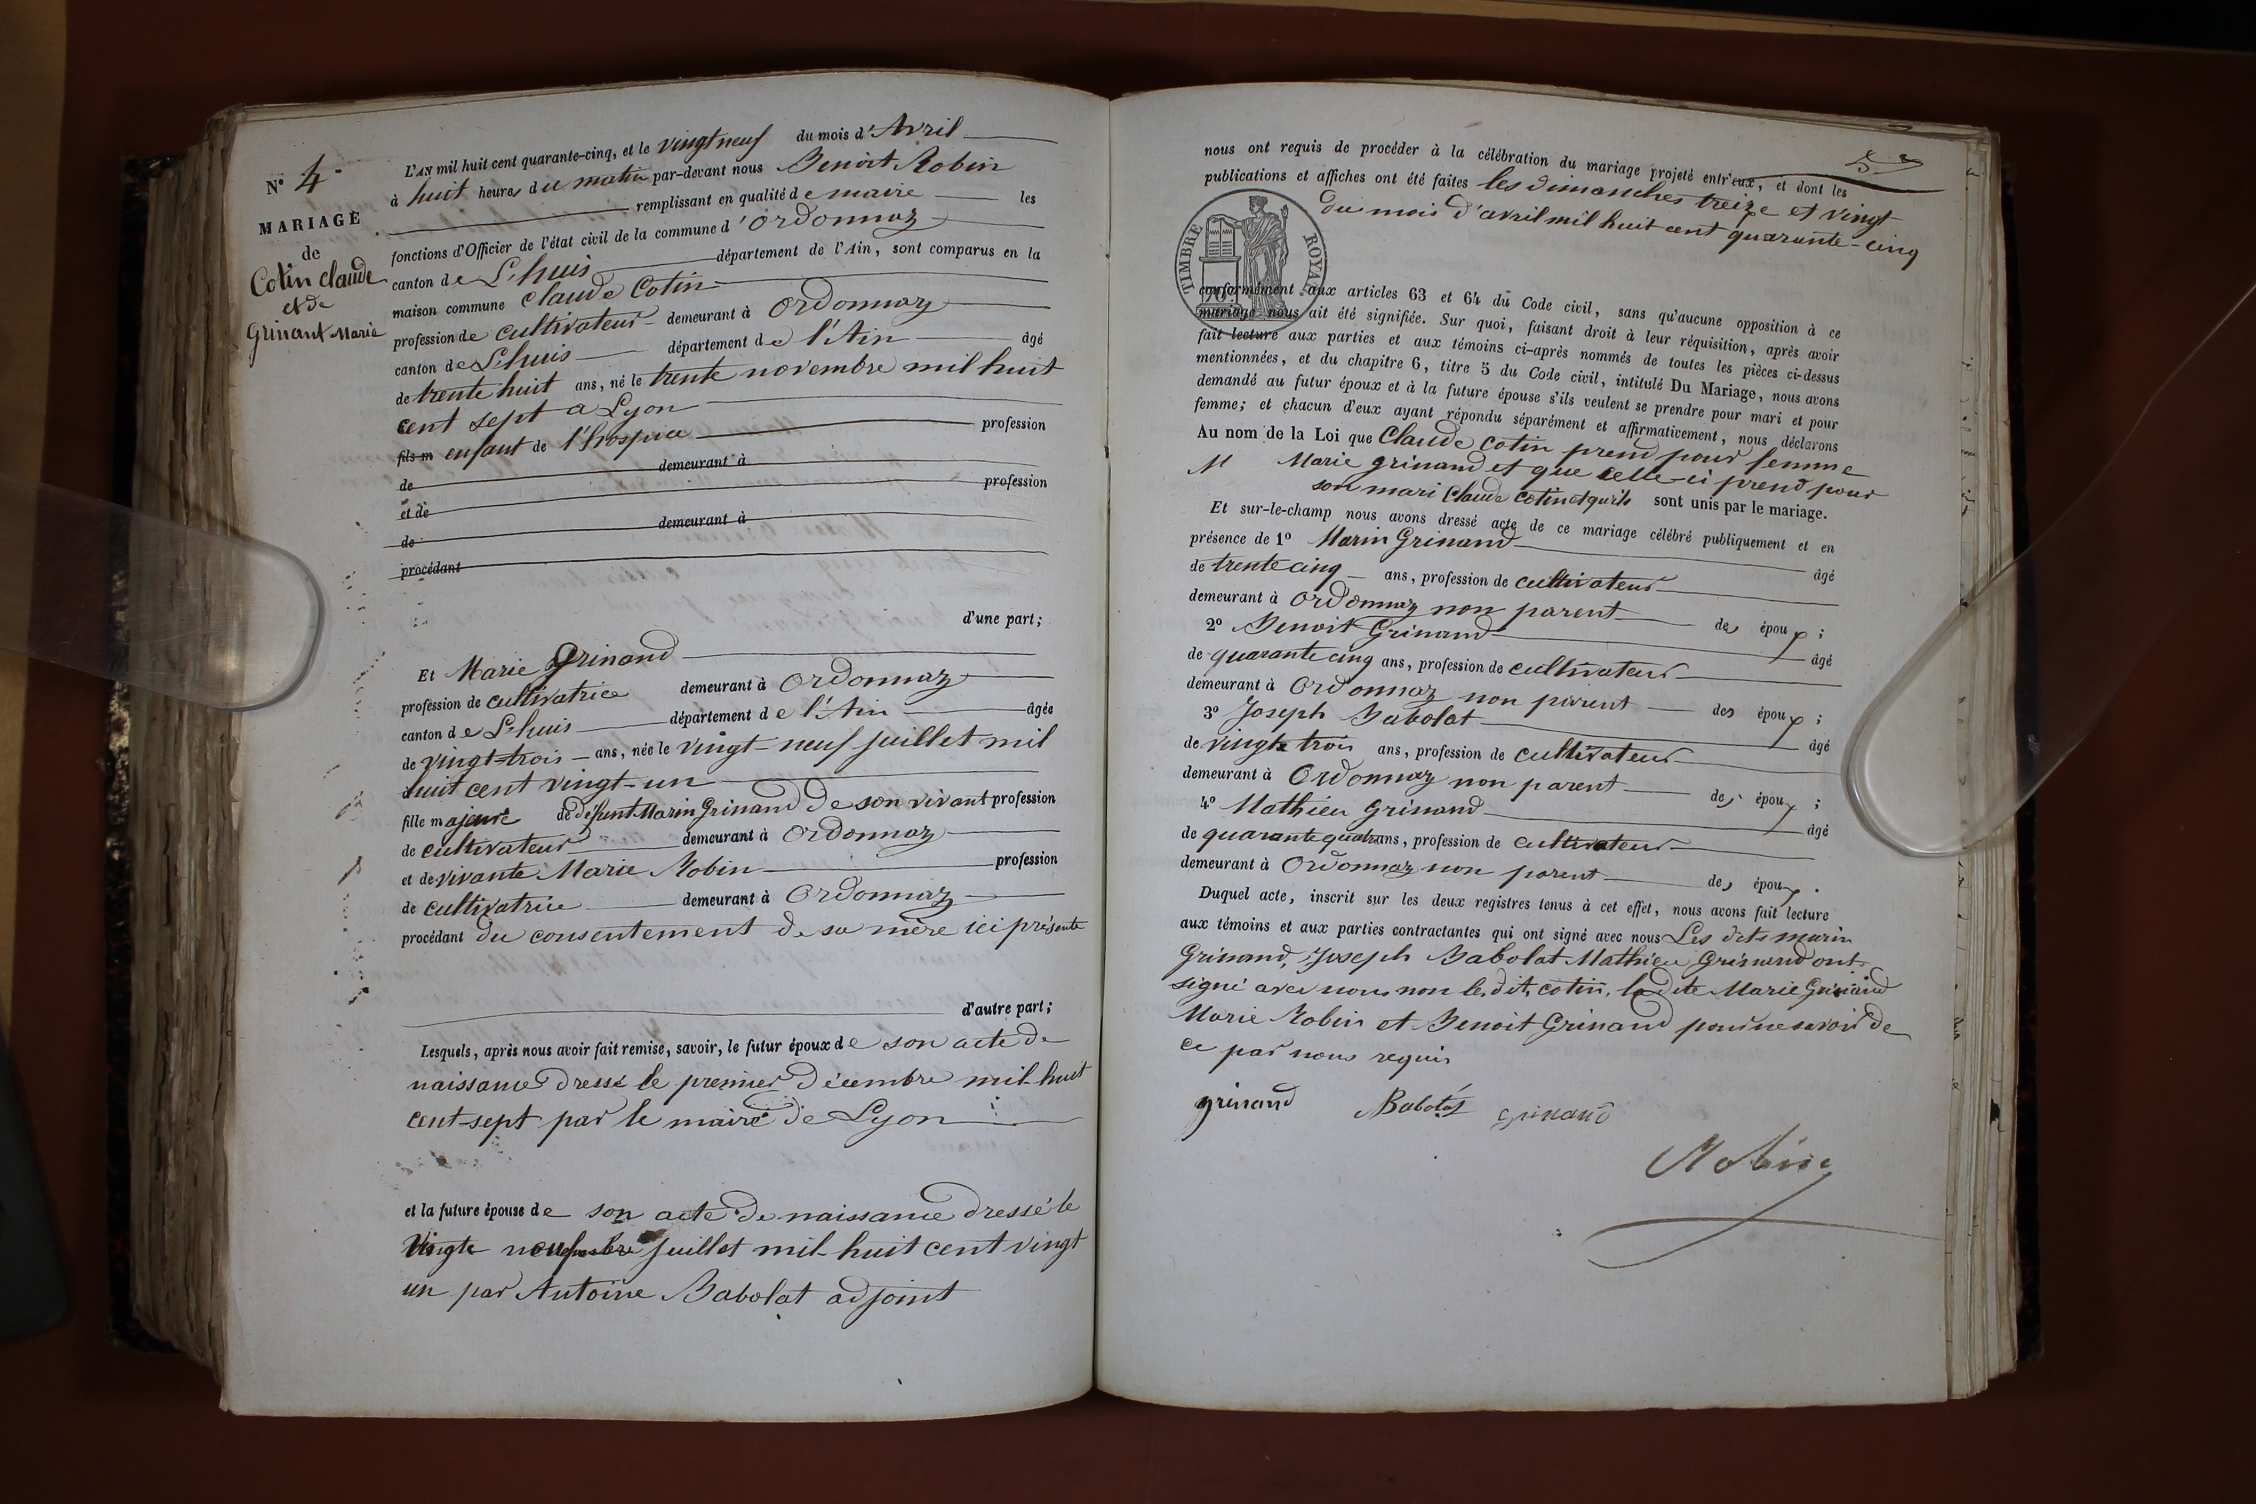 N° 4.
MARIAGE
de
Cotin claude
et de
Grinand Marie
L'AN mil huit cent quarante-cinq, et le vingt neuf du mois d'Avril
à huit heures du matin par-devant nous Benoit Robin
remplissant en qualité de maire les
fonctions d'Officier de l'état civil de la commune d'Ordonnaz
canton de L'huis département de l'Ain, sont comparus en la
maison commune Claude Cotin
profession de cultivateur demeurant à Ordonnaz
canton de L'huis département de l'Ain âgé
de trente huit ans, né le trente novembre mil huit
cent sept a Lyon
fils m enfant de l'hospice profession
de demeurant à
et de profession
de demeurant à
procédant
d'une part;
Et Marie Grinand
profession de cultivatrice demeurant à Ordonnaz
canton de L'huis département de l'Ain âgée
de vingt-trois ans, née le vingt-neuf juillet mil
huit cent vingt-un
fille majeure de défunt Marin Grinand de son vivant profession
de cultivateur demeurant à Ordonnaz
et de vivante Marie Robin profession
de cultivatrice demeurant à Ordonnaz
procédant du consentement de sa mère ici présente
d'autre part;
Lesquels, après nous avoir fait remise, savoir, le futur époux de son acte de
naissance dressé le premier Décembre mil huit
cent-sept par le maire de Lyon
et la future épouse de son acte de naissance dressé le
vingte neuf juillet mil huit cent vingt
un par Antoine Babolat adjoint
nous ont requis de procéder à la célébration du mariage projeté entr'eux, et dont les
publications et affiches ont été faites les dimanches treize et vingt
du mois d'avril mil huit cent quarante-cinq
TIMBRE ROYAL
conformément aux articles 63 et 64 du Code civil, sans qu'aucune opposition à ce
mariage nous ait été signifiée. Sur quoi, faisant droit à leur réquisition, après avoir
fait lecture aux parties et aux témoins ci-après nommés de toutes les pièces ci-dessus
mentionnées, et du chapitre 6, titre 5 du Code civil, intitulé Du Mariage, nous avons
demandé au futur époux et à la future épouse s'ils veulent se prendre pour mari et pour
femme; et chacun d'eux ayant répondu séparément et affirmativement, nous déclarons
Au nom de la Loi que Claude Cotin prend pour femme
M Marie Grinand et que celle-ci prend pour
son mari Claude Cotin et qu'ils sont unis par le mariage.
Et sur-le-champ nous avons dressé acte de ce mariage célébré publiquement et en
présence de 1° Marin Grinand âgé
de trente cinq ans, profession de cultivateur
demeurant à Ordonnaz non parent des époux;
2° Benoit Grinand âgé
de quarante cinq ans, profession de cultivateur
demeurant à Ordonnaz non parent des époux;
3° Joseph Babolat âgé
de vingt trois ans, profession de cultivateur
demeurant à Ordonnaz non parent des époux;
4° Mathieu Grinand âgé
de quarante quatre ans, profession de cultivateur
demeurant à Ordonnaz non parent des époux.
Duquel acte, inscrit sur les deux registres tenus à cet effet, nous avons fait lecture
aux témoins et aux parties contractantes qui ont signé avec nous Les dits marin
Grinand, Joseph Babolat Mathieu Grinand ont
signé avec nous non le dit cotin, la dite Marie Grinand
Marie Robin et Benoit Grinand pour ne savoir de
ce par nous requis
grinand Babolat grinand
Robin